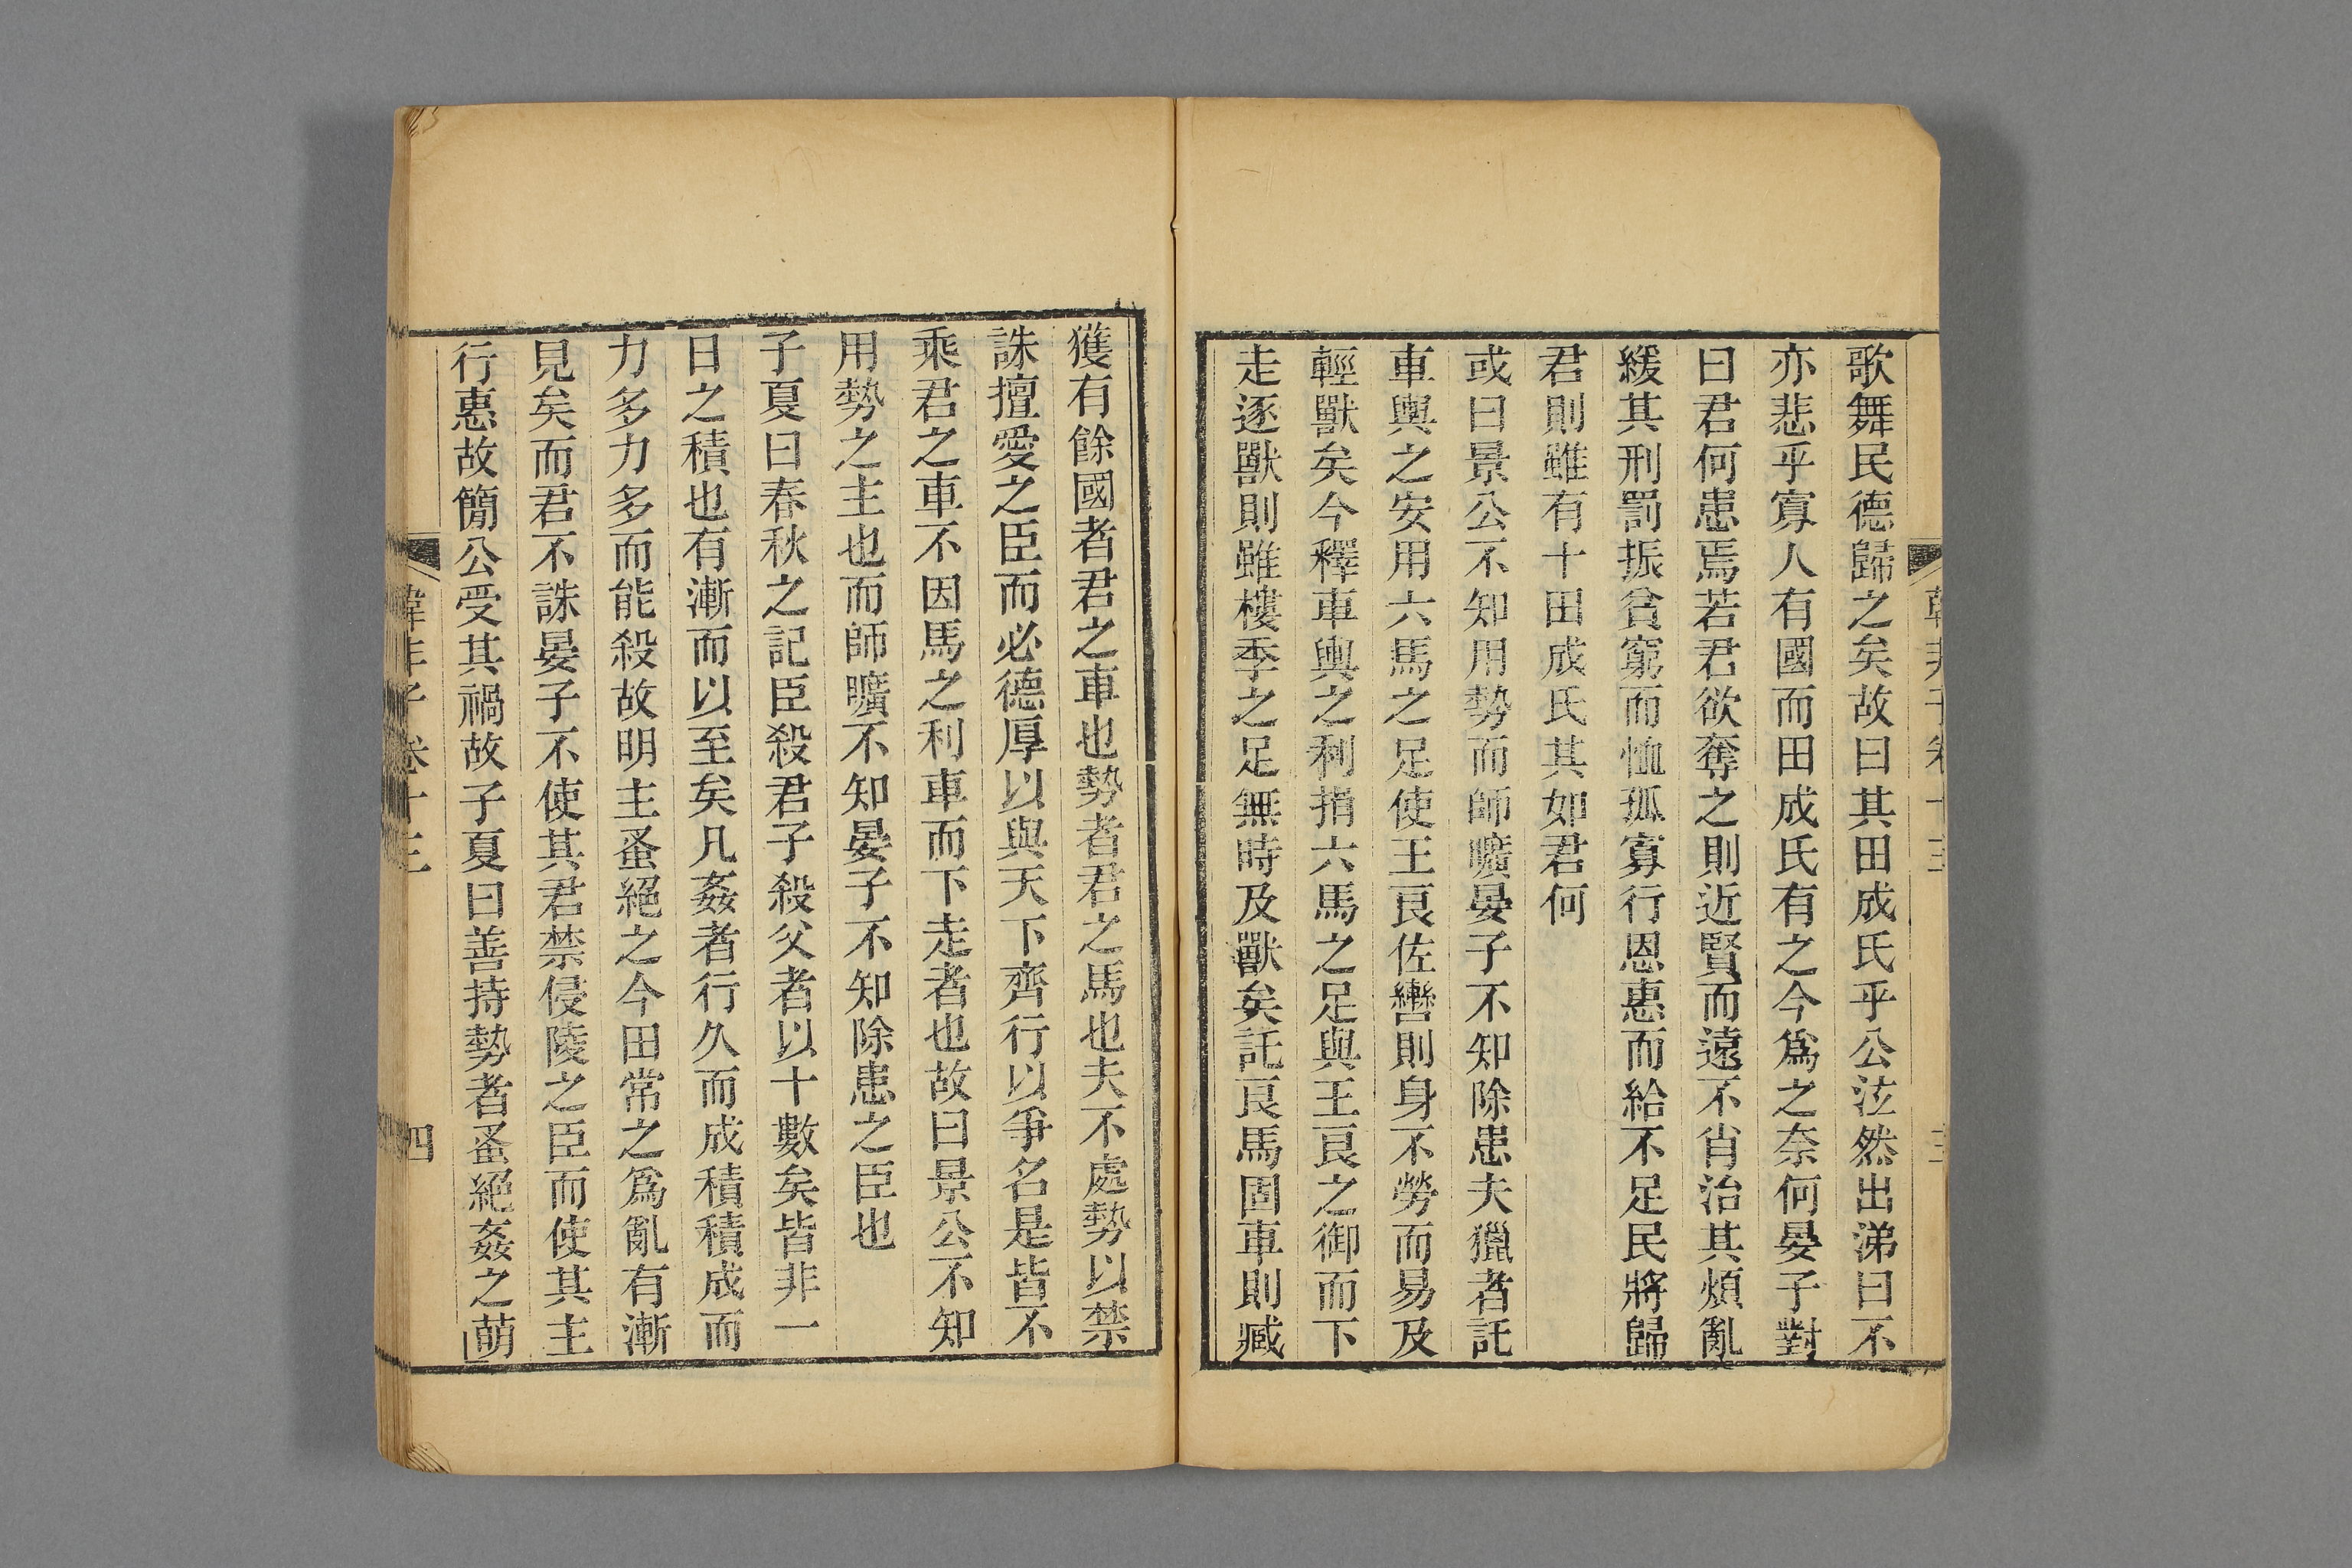 歌舞民德歸之矣故曰其田成氏乎公泫然出涕曰不
亦悲乎寡人有國而田成氏有之今爲之奈何晏子對
曰君何患焉若君欲奪之則近賢而遠不肖治其煩亂
緩其刑罰振貧窮而恤孤寡行恩惠而給不足民將歸
君則雖有十田成氏其如君何
或曰景公不知用勢而師曠晏子不知除患夫獵者託
車輿之安用六馬之足使王良佐轡則身不勞而易及
輕獸矣今釋車輿之利捐六馬之足與王良之御而下
走逐獸則雖樓季之足無時及獸矣託良馬固車則臧
獲有餘國者君之車也勢者君之馬也夫不處勢以禁
誅擅愛之臣而必德厚以與天下齊行以爭名是皆不
乘君之車不因馬之利車而下走者也故曰景公不知
用勢之主也而師曠不知晏子不知除患之臣也
子夏曰春秋之記臣殺君子殺父者以十數矣皆非一
日之積也有漸而以至矣凡姦者行久而成積積成而
力多力多而能殺故明主蚤絕之今田常之爲亂有漸
見矣而君不誅晏子不使其君禁侵陵之臣而使其主
行惠故簡公受其禍故子夏曰善持勢者蚤絕姦之萌
韓非子卷十三
四